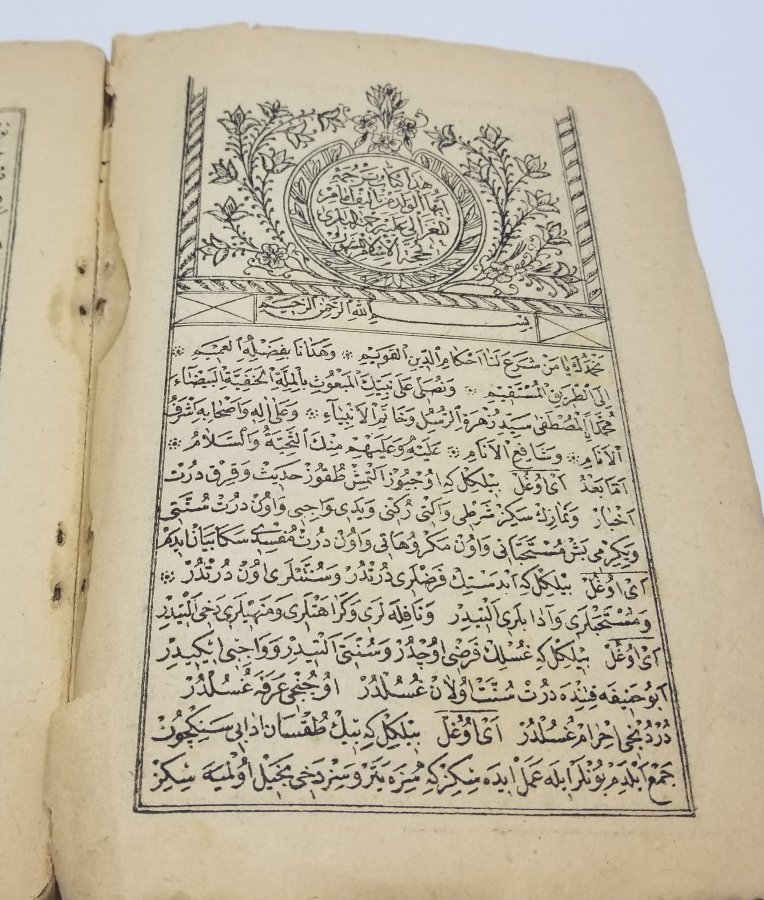 هذا كتاب ترجمه
ايها الولد من تأليف امام
الغزالى عليه رحمة البارى
حجة الاسلام
بسم الله الرحمن الرحيم
نحمدك يا من شرع لنا احكام الدين القويم ❊ وهدانا بفضله العميم ❊
الى الطريق المستقيم ❊ ونصلى على نبيك المبعوث بالملة الحنفية البيضاء
محمد المصطفى سيد زهرة الرسل وخاتم الانبياء ❊ وعلى اله واصحابه اشرف
الانام ❊ وشافع الانام ❊ عليه وعليهم منك التحية والسلام ❊
اما بعد اى اوغل بيلكل كه اوچيوز التمش طقوز حديث وقرق درت
اخبار ونمازك سكز شرطى والتى ركنى ويدى واجبى واون درت سنتى
ويكرمى بش مستحباتى واون مكروهاتى واون درت مفسدى سكا بيان ايدهم
اى اوغل بيلكل كه ابدستك فرضلرى درتدر وسنتلرى اون درتدر ❊
ومستحبلرى وآدابلرى التيدر ونافله لرى وكراهتلرى ومنهيلرى دخى التيدر
اى اوغل بيلكل كه غسلك فرضى اوچدر وسنتى التيدر وواجبى ايكيدر
ابو حنيفه قتنده درت سنت اولان غسلدر اوچنجى عرفه غسلدر
دردنجى احرام غسلدر اى اوغل بيلكل كه بيك طقسان ادابى سنكچون
جمع ايلدم بونلر ايله عمل ايده سكز كه سزه يتر وسز دخى بخيل اولميه سكز